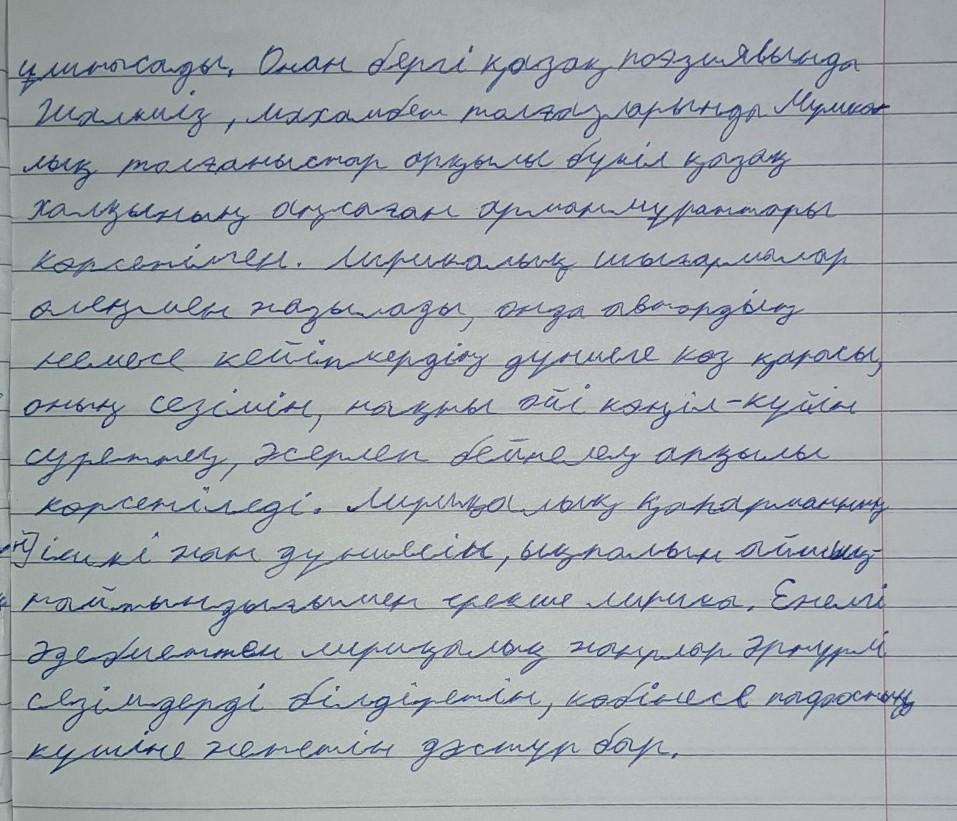 ұшырасады. Онан бергі қазақ поэзиявында
Шалкиіз, махамбет толғауларында Мұңша
лық толғаныстар арқылы бүкіл қазақ
халқының аңсаған арманмұраттары
көрсетілген. Лирикалық шығармалар
өлеңмен жазылады, онда автордың
немесе кейіпкердің дүниеге көз қарасы,
оның сезімін, нақты әйі көңіл-күйін
суреттеу, әсерлеп бейнелеу арқылы
көрсетіледі. Лириқалық қаһарманның
ішкі жан дүниесін, ықпалын айшық-
тайтындығымен ерекше лирика. Ежелгі
әдебиеттен лириқалық жанрлар әртүрлі
сезімдерді білдіретін, көбінесе пафостың
күшіне жететін дәстүр бар.